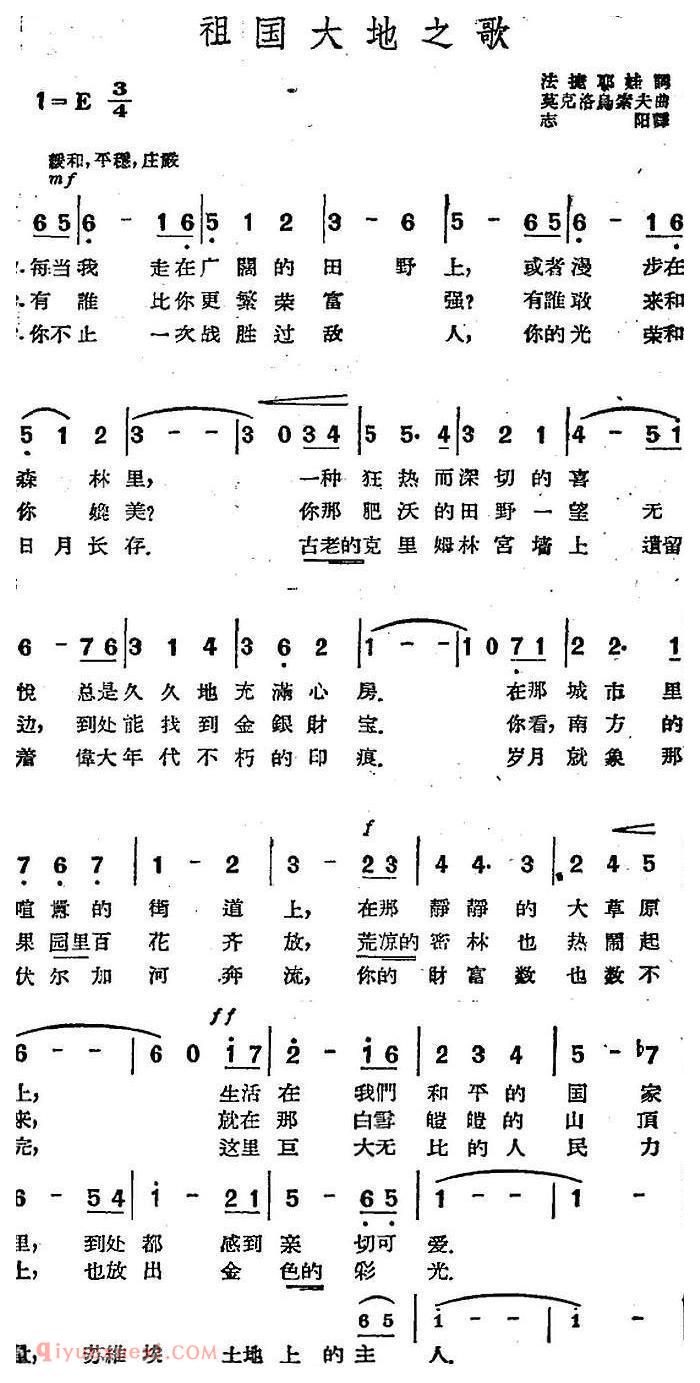 祖国大地之歌
1=E 3/4
法捷耶娃詞
莫克洛烏索夫曲
志 阳譯
緩和,平穩,庄嚴
mf
6 5 | 6 - 1 6 | 5 1 2 | 3 - 6 | 5 - 6 5 | 6 - 1 6 |
1. 每当我 走在广闊的田 野上, 或者漫 步在
2. 有誰 比你更繁荣富 强? 有誰敢 来和
3. 你不止 一次战胜过敌 人, 你的光 荣和
5 1 2 | 3 - - | 3 0 3 4 | 5 5· 4 | 3 2 1 | 4 - 5 1 |
森林里, 一种狂热而深切的喜
你媲美? 你那肥沃的田野一望 无
日月长存. 古老的克里姆林宫墙上 遺留
6 - 7 6 | 3 1 4 | 3 6 2 | 1 - - | 1 0 7 1 | 2 2· 1 |
悅 总是久久地充滿心房. 在那城市里
边, 到处能找到金銀財宝. 你看,南方的
着 偉大年代不朽的印痕. 岁月就象那
7 6 7 | 1 - 2 | 3 - 2 3 | 4 4· 3 | 2 4 5 |
f
喧囂的街 道上, 在那靜靜的大草原
果园里百花 齐放, 荒凉的密林也热鬧起
伏尔加河 奔流, 你的財富数也数不
ff
6 - - | 6 0 1 7 | 2 - 1 6 | 2 3 4 | 5 - ♭7 |
上, 生活在 我們和平的国 家
来, 就在那 白雪皚皚的山 頂
完, 这里巨 大无比的人民 力
6 - 5 4 | 1 - 2 1 | 5 - 6 5 | 1 - - | 1 -
里, 到处都 感到亲 切可爱.
上, 也放出 金色的彩 光.
6 5 | 1 - - | 1 -
量, 苏維埃 土地上的主 人.
qiyuexuexi.com